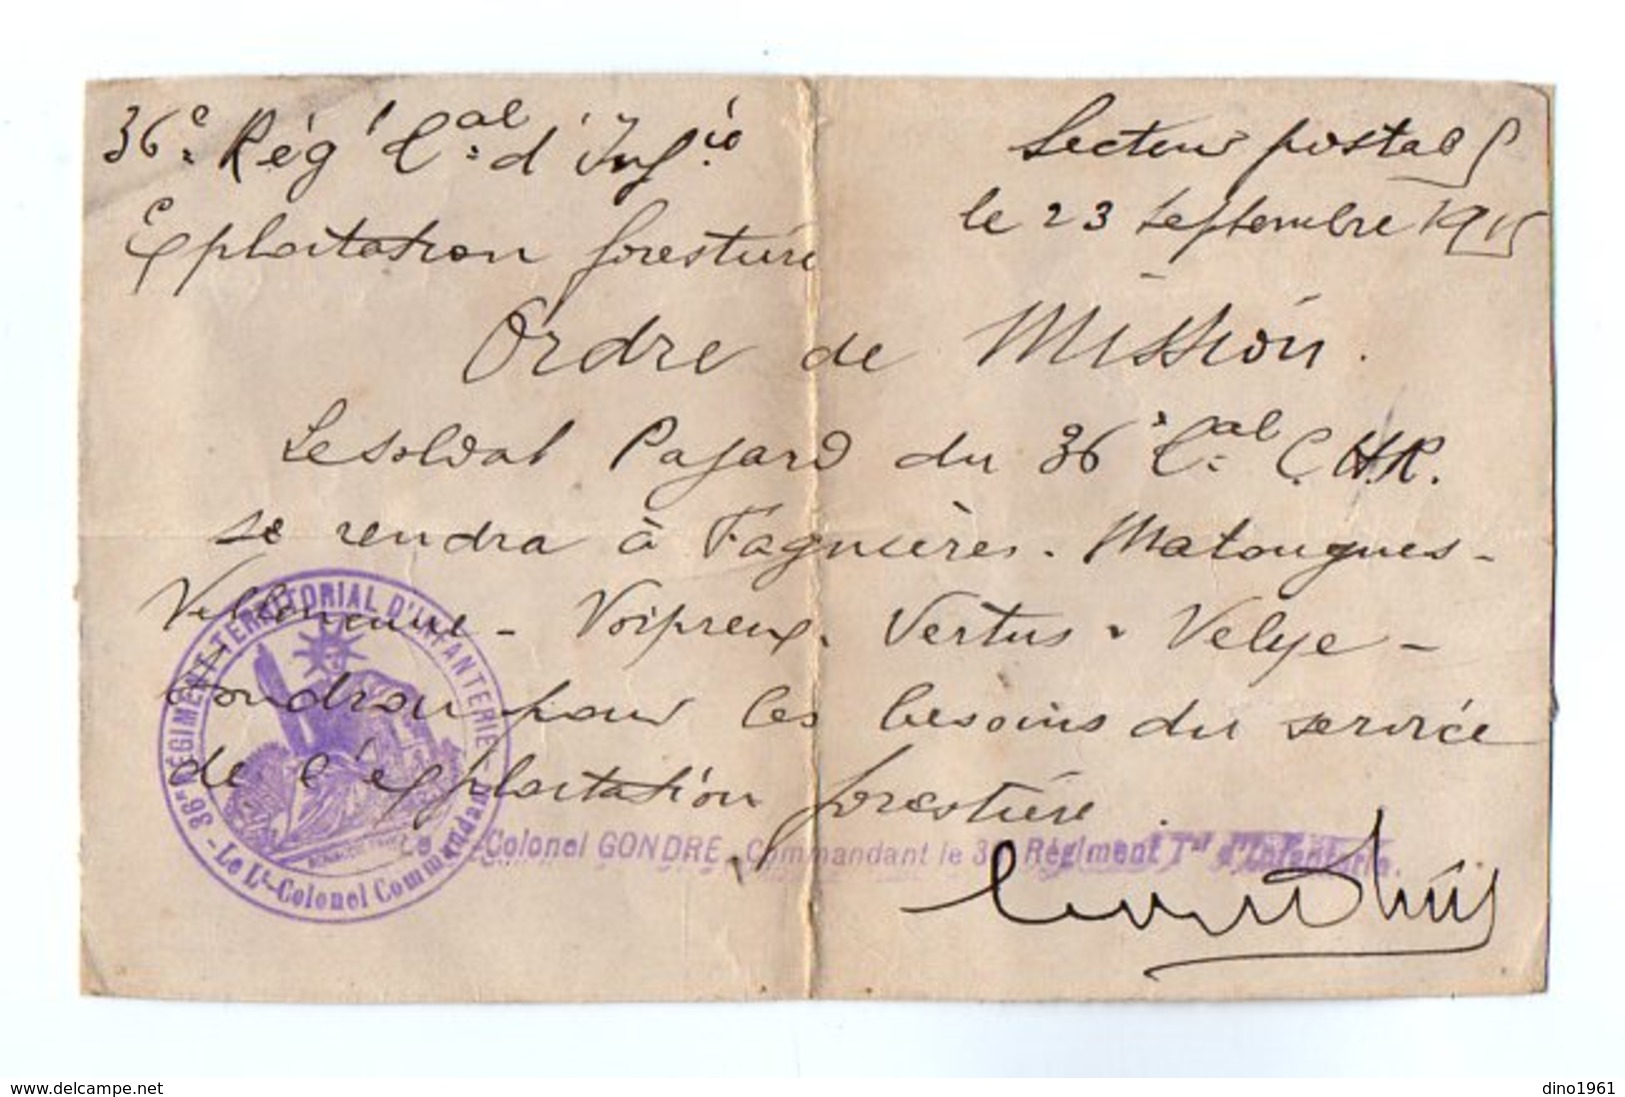 36e Régt tal d'Infie
Secteur postal 5
Exploitation forestière
le 23 Septembre 1915
Ordre de Mission.
Le soldat Pajard du 36e tal C.H.R.
se rendra à Fagnières - Matougues -
Villeneuve - Voipreux - Vertus - Velye -
pour les besoins du service
de l'exploitation forestière.
36e RÉGIMENT TERRITORIAL D'INFANTERIE
- Le Lt-Colonel Commandant
Le -Colonel GONDRE, Commandant le 36 Régiment Tal d'Infanterie.
www.delcampe.net
dino1961